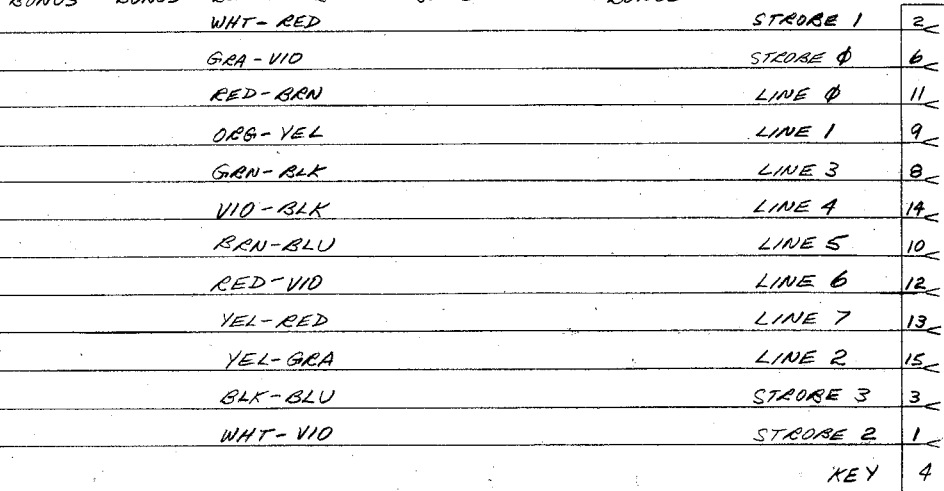 BONUS BONUS BONUS
WHT-RED STROBE 1 2
GRA-VIO STROBE Φ 6
RED-BRN LINE Φ 11
ORG-YEL LINE 1 9
GRN-BLK LINE 3 8
VIO-BLK LINE 4 14
BRN-BLU LINE 5 10
RED-VIO LINE 6 12
YEL-RED LINE 7 13
YEL-GRA LINE 2 15
BLK-BLU STROBE 3 3
WHT-VIO STROBE 2 1
KEY 4